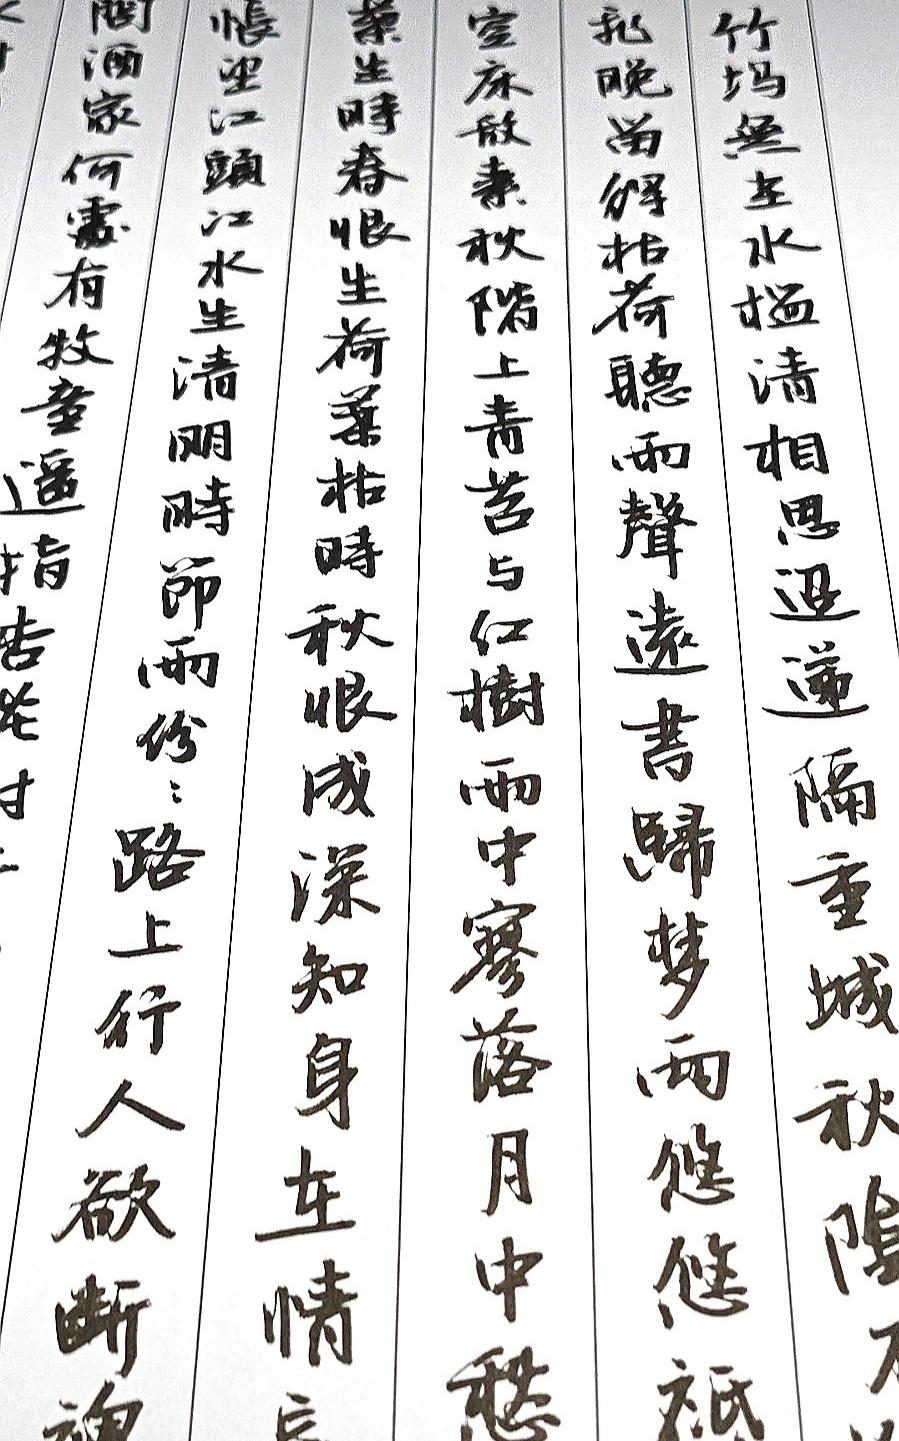 竹塢無塵水檻清相思迢遞隔重城秋陰不
飛晚留得枯荷聽雨聲遠書歸梦兩悠悠祇
空床敵素秋階上青苔与红樹雨中寥落月中愁
葉生時春恨生荷葉枯時秋恨成深知身在情長
悵望江頭江水生清明時節雨纷〻路上行人欲斷魂
問酒家何處有牧童遥指杏花村